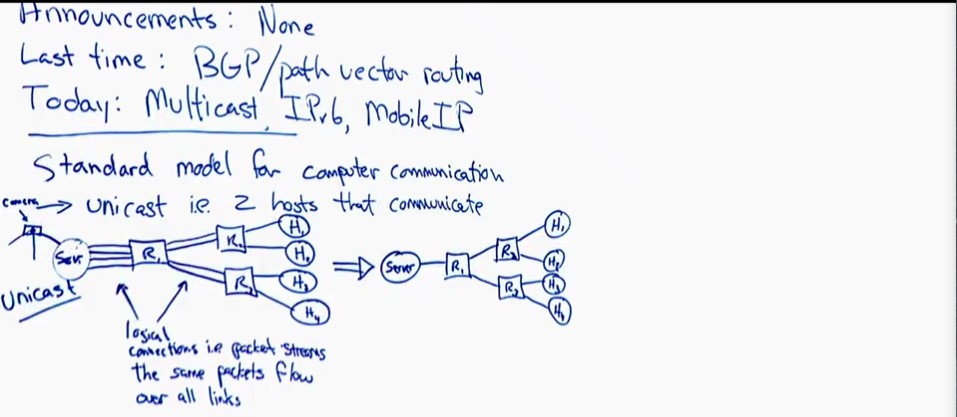 Announcements: None
Last time: BGP/path vector routing
Today: Multicast, IPv6, Mobile IP
Standard model for computer communication
camera → unicast i.e. 2 hosts that communicate
Server R1 R2 H1 H2 R3 H3 H4 ⇒ Server R1 R2 H1 H2 R3 H3 H4
Unicast
logical
connections i.e packet streams
the same packets flow
over all links